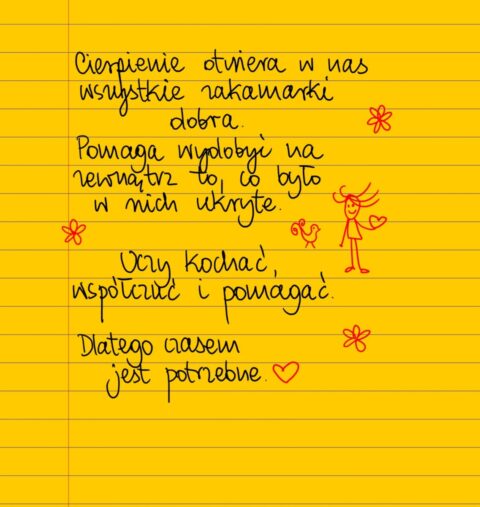 Cierpienie otwiera w nas
wszystkie zakamarki
dobra.
Pomaga wydobyć na
zewnątrz to, co było
w nich ukryte.
Uczy kochać,
współczuć i pomagać.
Dlatego czasem
jest potrzebne.